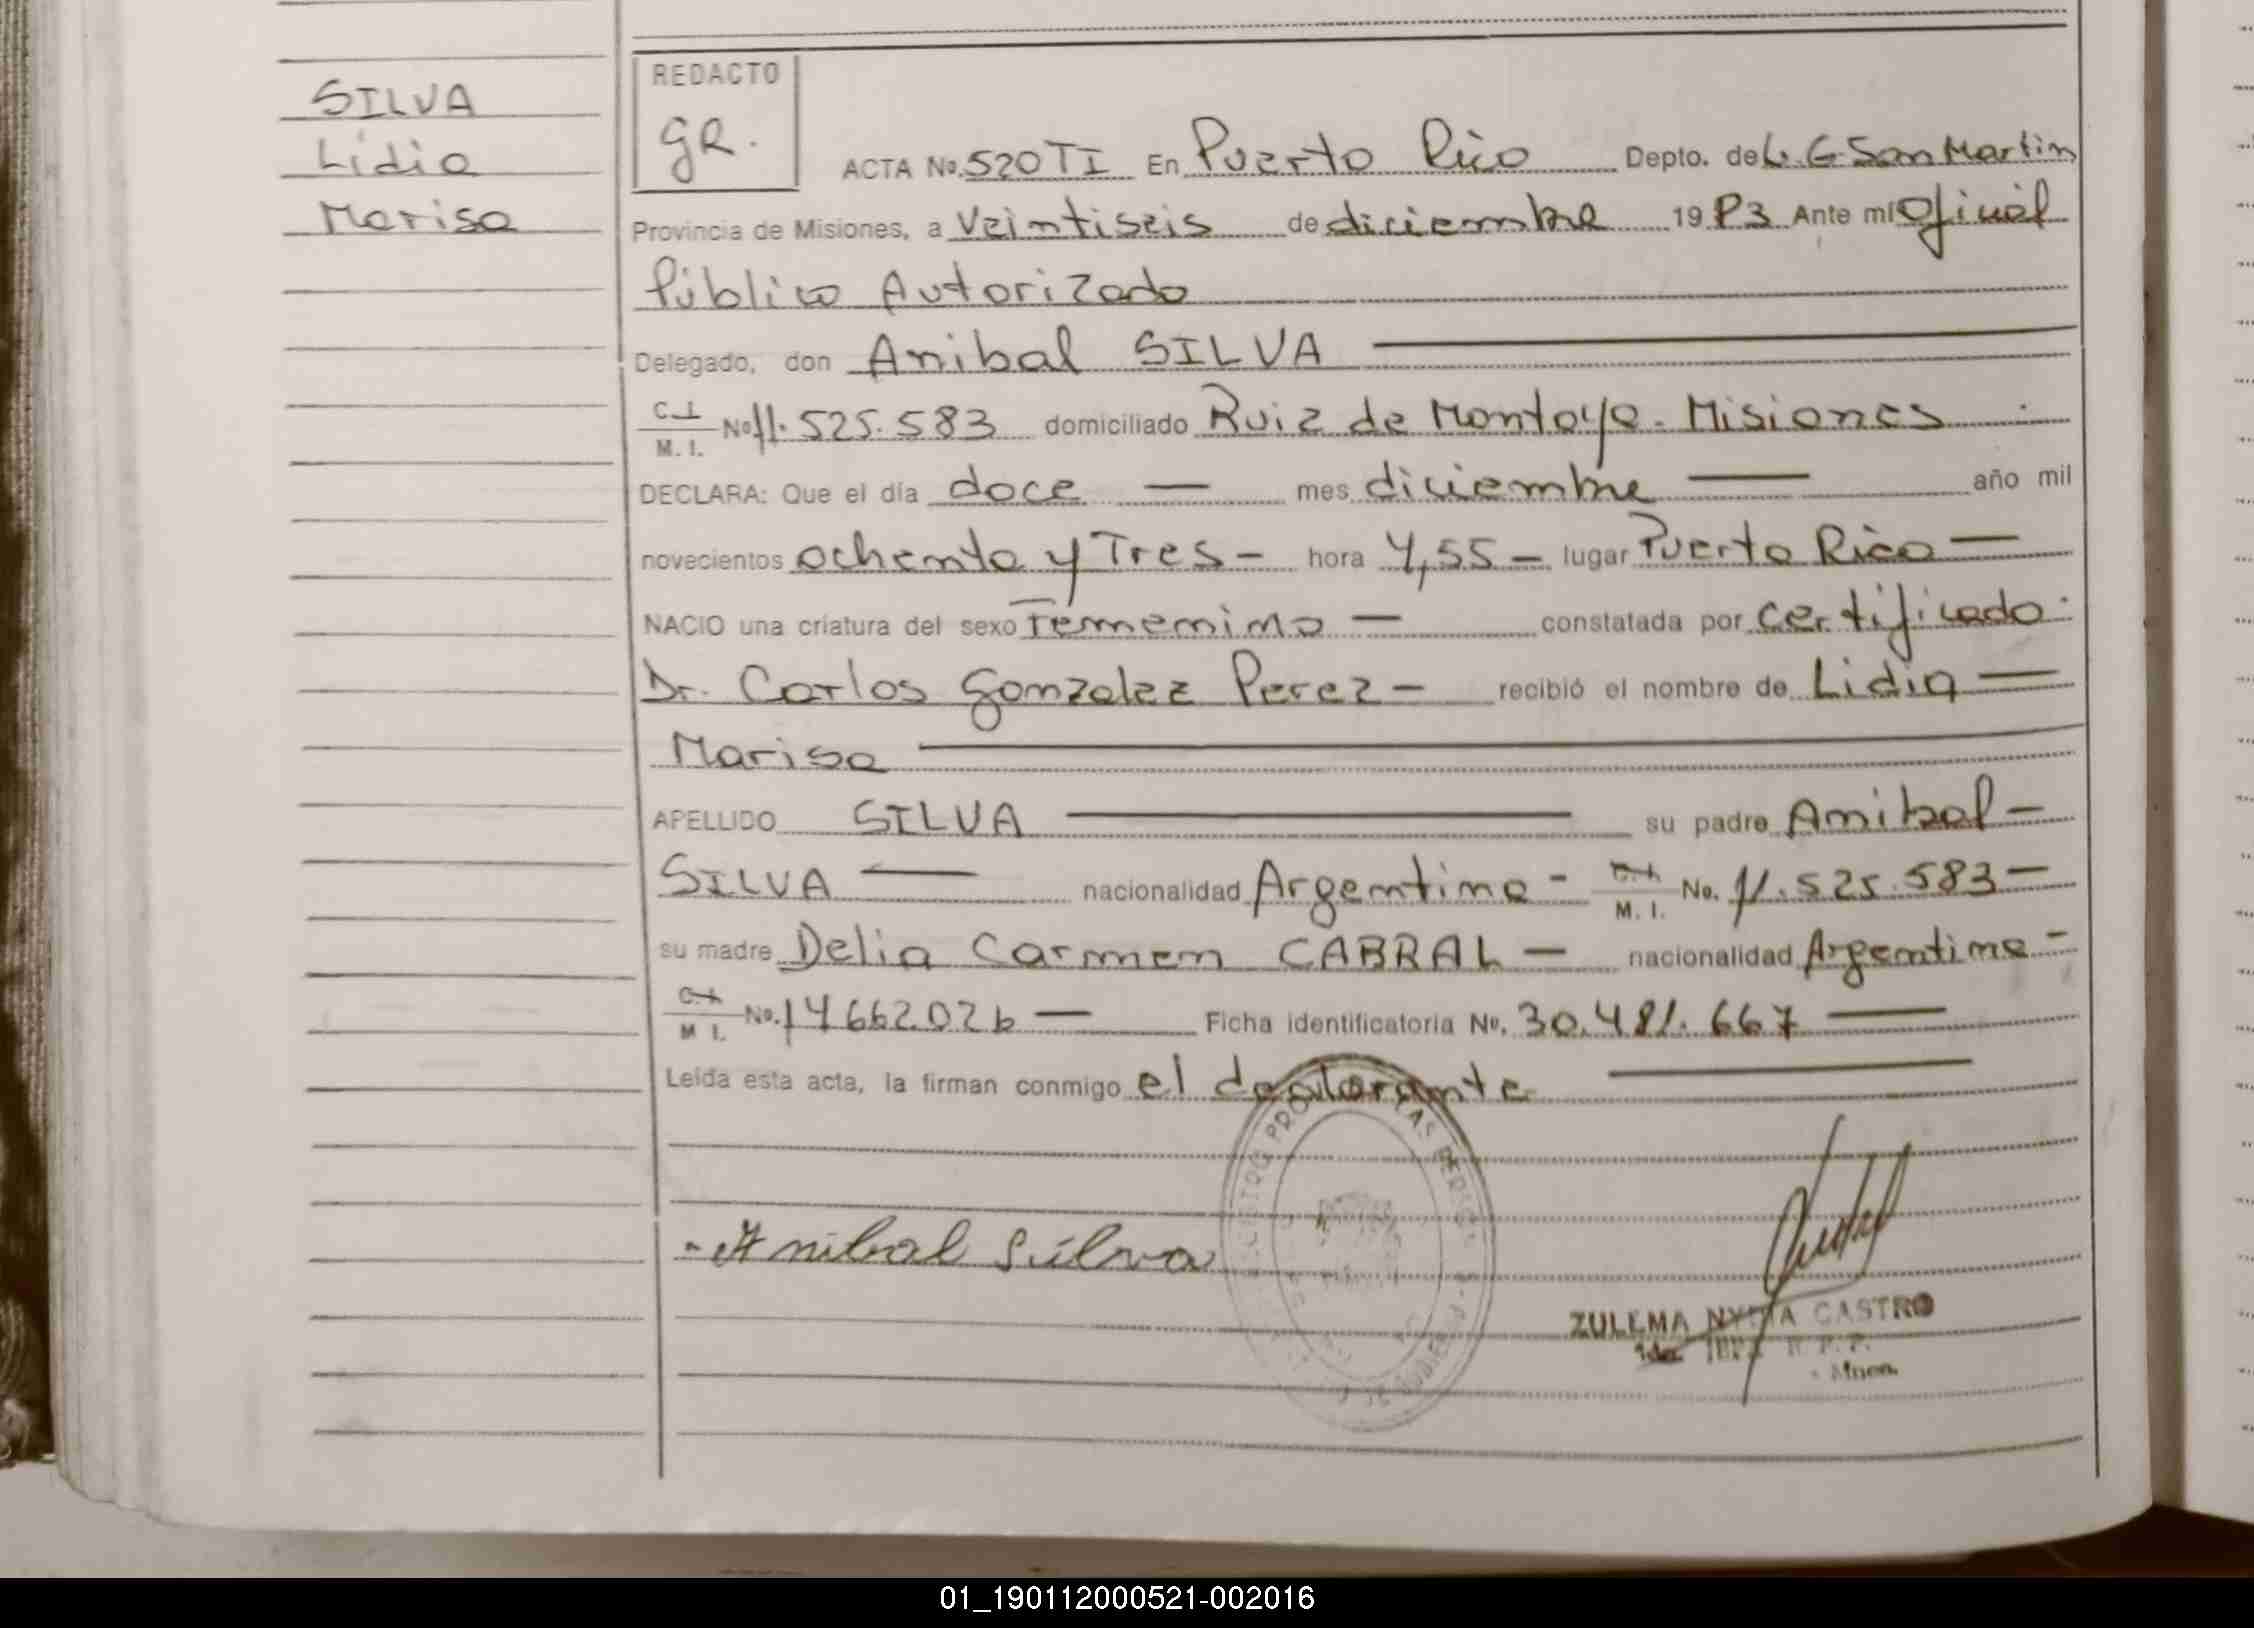 SILVA
Lidia
Marisa
REDACTO
GR.
ACTA No. 520 TI En Puerto Rico Depto. de L. G. San Martin
Provincia de Misiones, a Veintiseis de diciembre 1983 Ante mi Oficial
Público Autorizado
Delegado, don Anibal SILVA
C.I. M. I. No 11.525.583 domiciliado Ruiz de Montoya - Misiones
DECLARA: Que el día doce — mes diciembre — año mil
novecientos ochenta y Tres - hora 4,55 - lugar Puerto Rico —
NACIO una criatura del sexo Femenino — constatada por certificado
Dr. Carlos Gonzalez Perez - recibió el nombre de Lidia —
Marisa
APELLIDO SILVA su padre Anibal -
SILVA — nacionalidad Argentina - C.I. M. I. No. 11.525.583 -
su madre Delia Carmen CABRAL - nacionalidad Argentina -
C.I. M I. No. 14662026 — Ficha identificatoria No. 30.481.667 —
Leída esta acta, la firman conmigo el declarante
Anibal Silva
ZULEMA NYDIA CASTRO
01_190112000521-002016